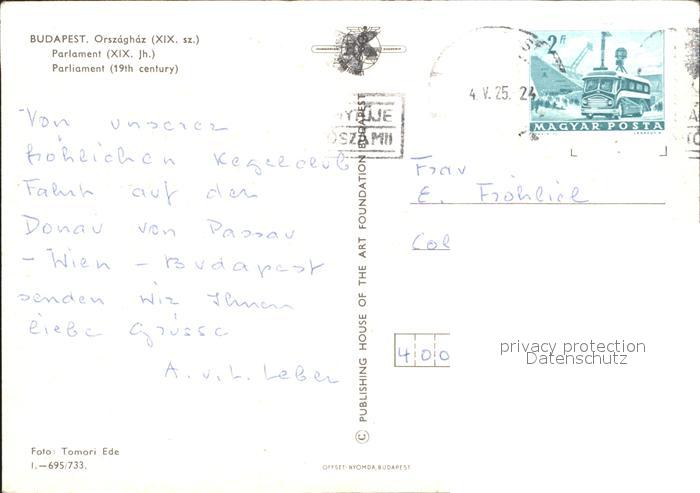 BUDAPEST. Országház (XIX. sz.)
Parlament (XIX. Jh.)
Parliament (19th century)
Von unserer
fröhlichen Kegelclub
Fahrt auf der
Donau von Passau
- Wien - Budapest
senden wir Ihnen
liebe Grüsse
A. u. L. Leber
Foto: Tomori Ede
I.—695/733.
© PUBLISHING HOUSE OF THE ART FOUNDATION BUDAPEST
OFFSET-NYOMDA, BUDAPEST
4. V. 25. 24
2 Ft
MAGYAR POSTA
Frau
E. Fröhlich
400
privacy protection
Datenschutz